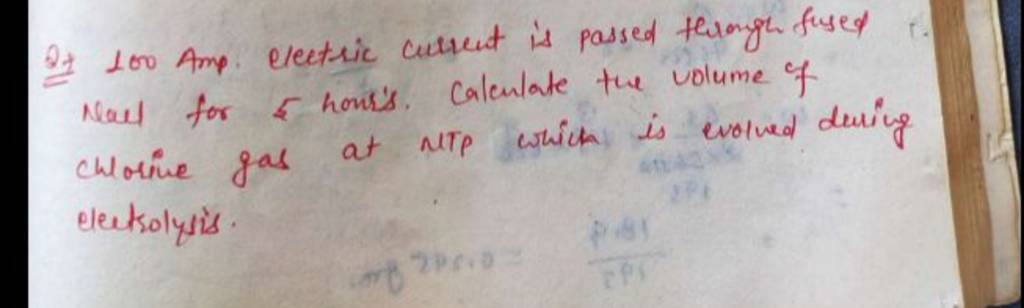 Q7 100 Amp. electric current is passed through fused
Nacl for 5 hour's. Calculate the volume of
chlorine gas at NTP which is evolved during
electrolysis.